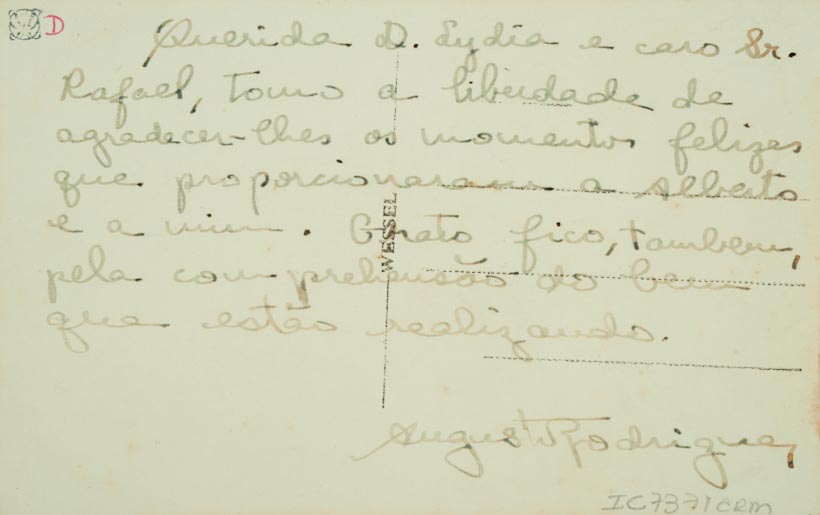 D
Querida D. Lydia e caro Sr.
Rafael, tomo a liberdade de
agradecer-lhes os momentos felizes
que proporcionaram a Alberto
e a mim. Grato fico, tambem,
pela comprehensão do bem
que estão realizando.
Augusto Rodrigues
WESSEL
IC7371CRM